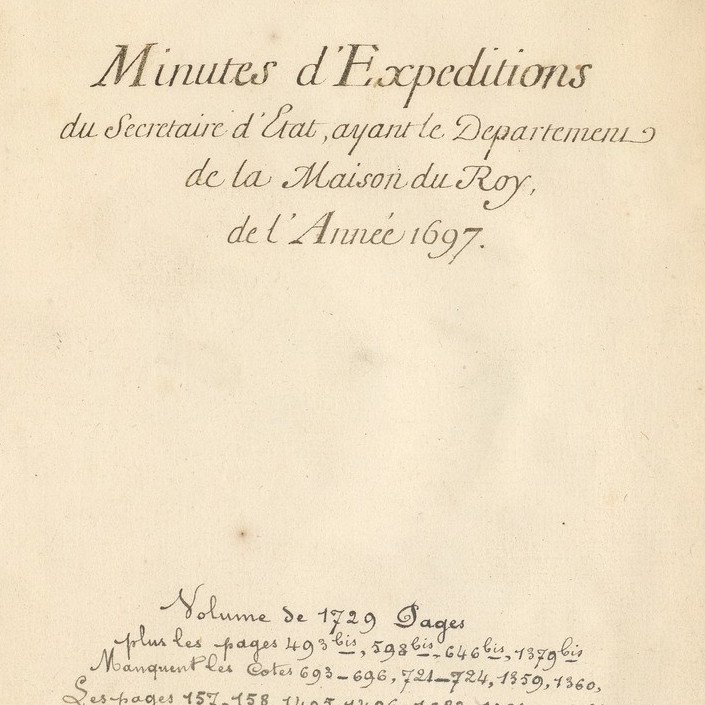 Minutes d'Expeditions
du Secretaire d'Etat, ayant le Departement
de la Maison du Roy,
de l'Année 1697.
Volume de 1729 Pages
plus les pages 493 bis, 598 bis, 646 bis, 1379 bis
Manquent les Cotes 693-696, 721-724, 1359, 1360,
Les pages 157, 158,